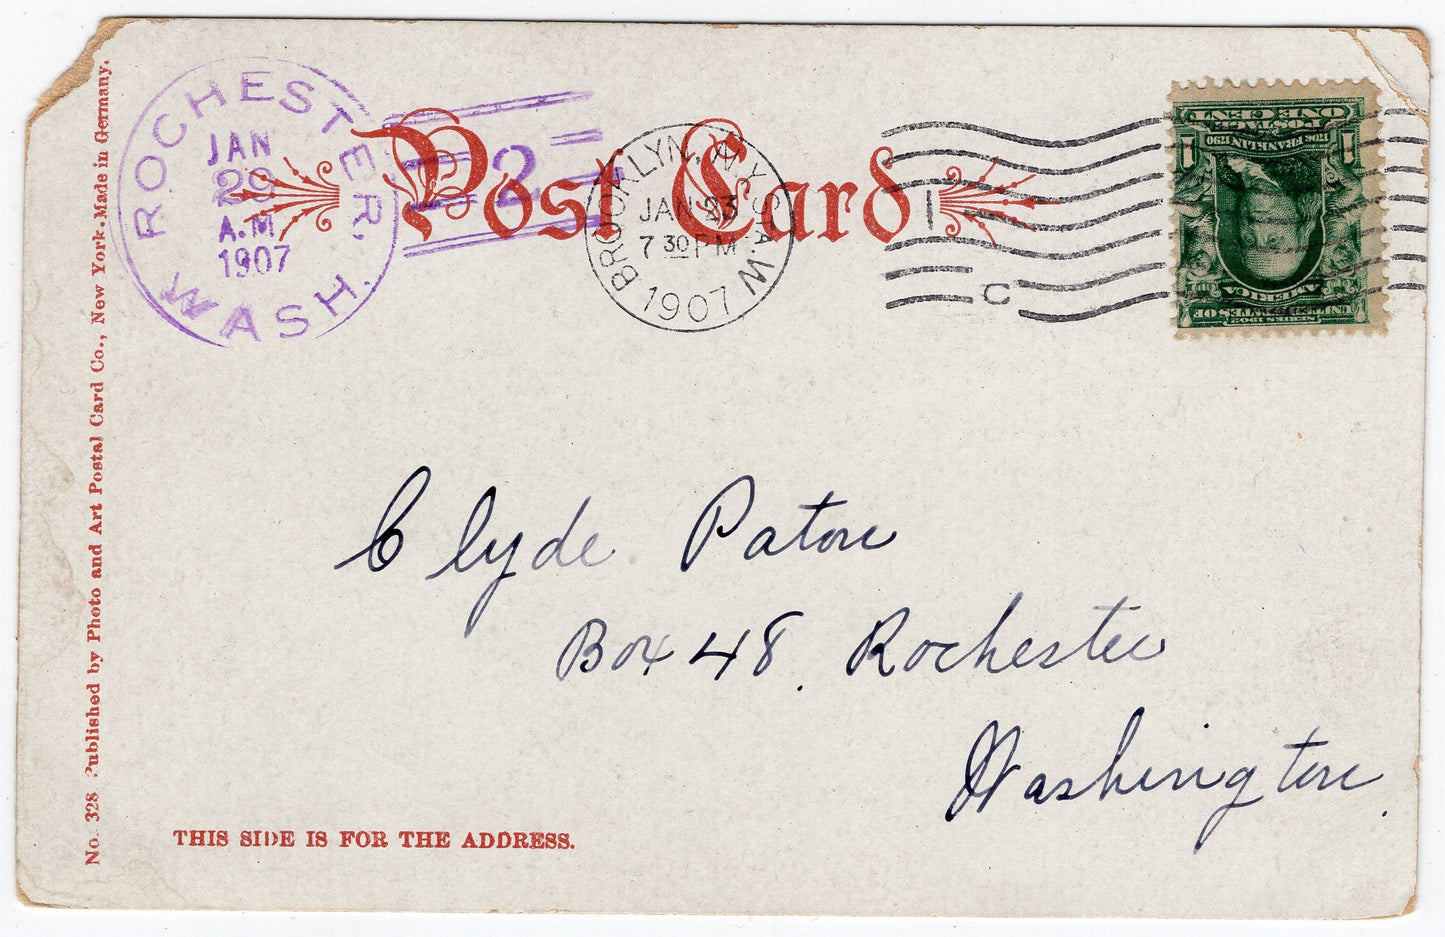 Post Card
ROCHESTER,
JAN
29
A.M.
1907
WASH.
2
BROOKLYN, N.Y. STA. W
JAN 23
7 30 PM
1907
1
C
UNITED STATES OF
AMERICA
SERIES 1902
1706 FRANKLIN 1790
POSTAGE
1 1
ONE CENT
Clyde Paton
Box 48. Rochester
Washington.
THIS SIDE IS FOR THE ADDRESS.
No. 328 Published by Photo and Art Postal Card Co., New York. Made in Germany.